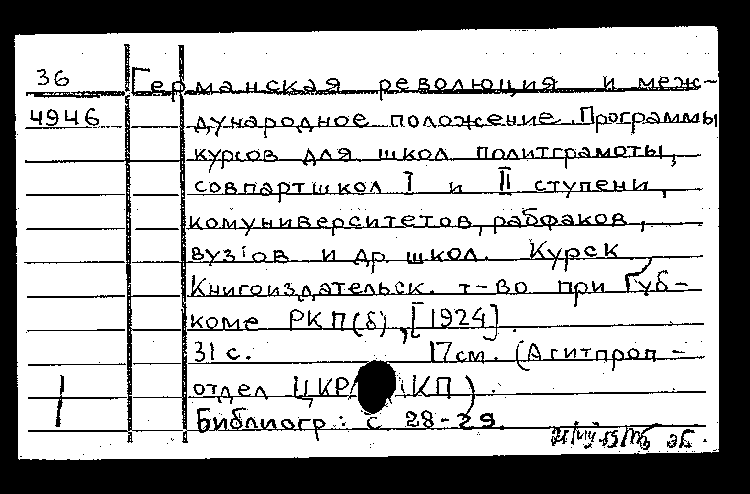 36 Германская революция и меж-
4946 дународное положение. Программы
курсов для школ политграмоты,
совпартшкол I и II ступени,
комуниверситетов, рабфаков,
вуз'ов и др. школ. Курск,
Книгоиздательск. т-во при Губ-
коме РКП(б), [1924].
31 с. 17см. (Агитпроп-
отдел ЦКР КП)
Библиогр: с 28-29.